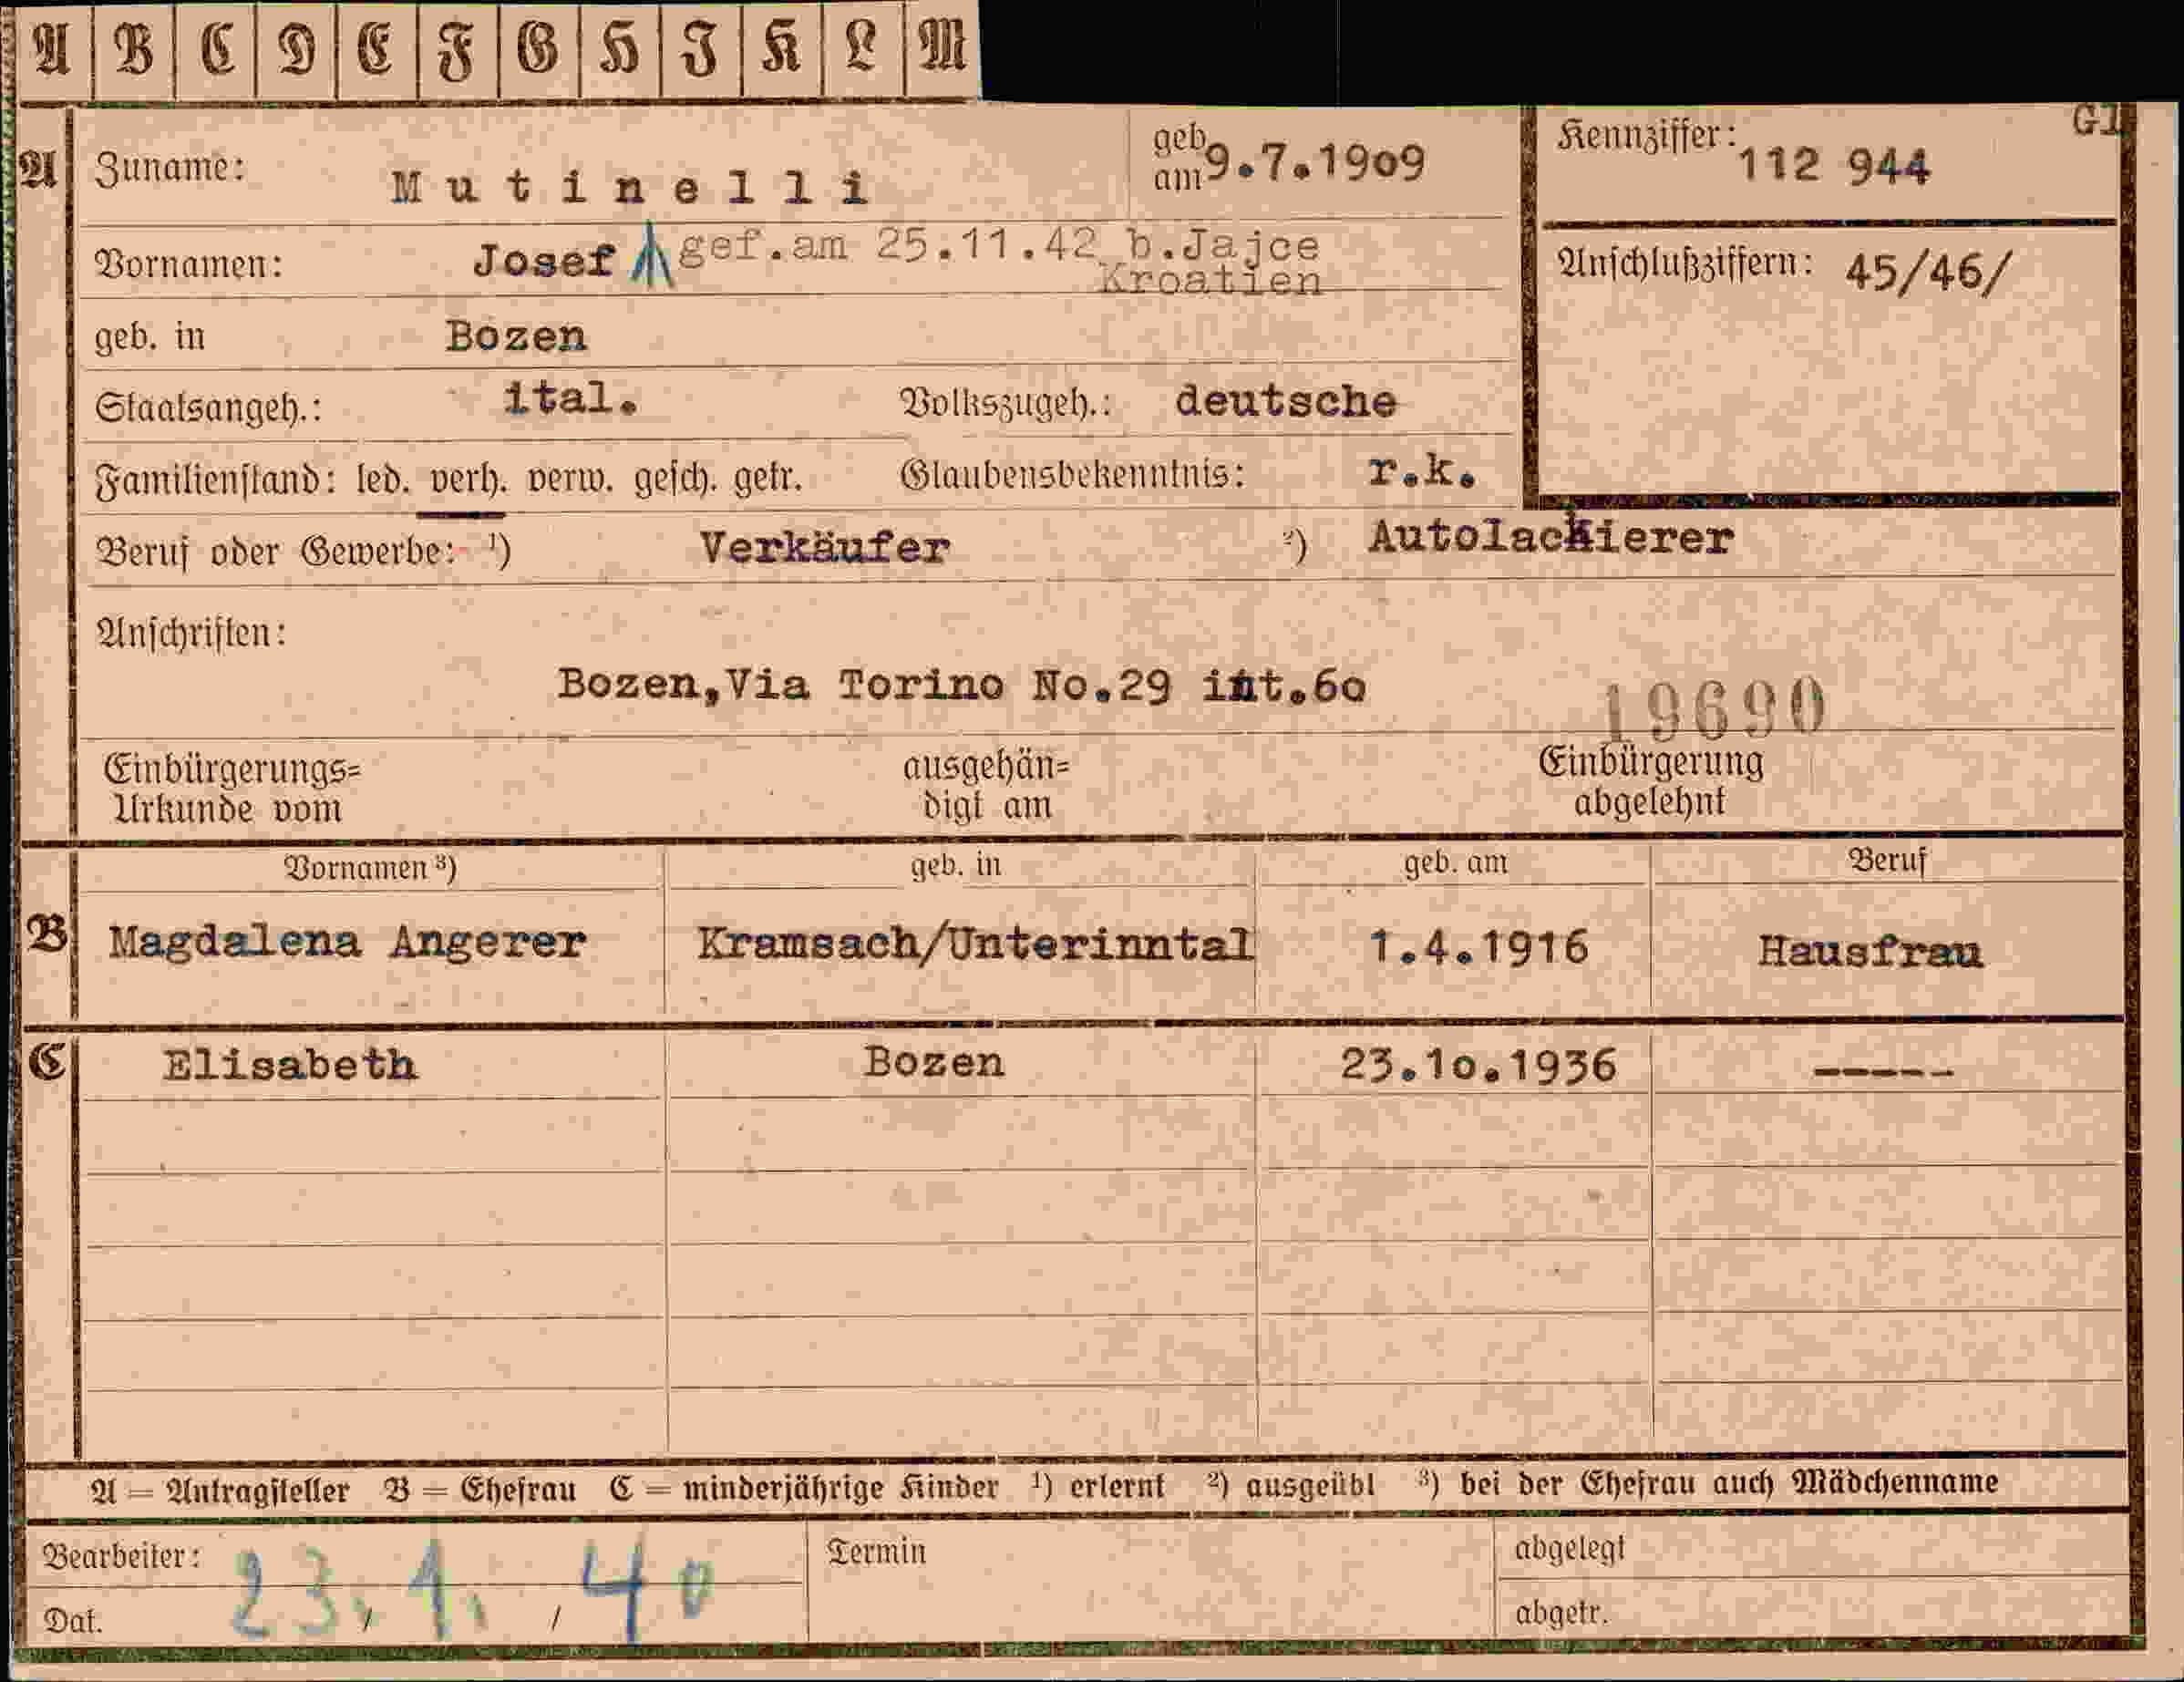 A B C D E F G H J K L M
A Zuname: Mutinelli geb. am 9.7.1909 Kennziffer: 112 944 G1
Vornamen: Josef gef.am 25.11.42 b.Jajce
Kroatien
Anschlußziffern: 45/46/
geb. in Bozen
Staatsangeh.: ital. Volkszugeh.: deutsche
Familienstand: led. verh. verw. gesch. getr. Glaubensbekenntnis: r.k.
Beruf oder Gewerbe: ¹) Verkäufer ²) Autolackierer
Anschriften:
Bozen,Via Torino No.29 int.6o
19690
Einbürgerungs= ausgehän= Einbürgerung
Urkunde vom digt am abgelehnt
Vornamen ³) geb. in geb. am Beruf
B Magdalena Angerer Kramsach/Unterinntal 1.4.1916 Hausfrau
C Elisabeth Bozen 23.1o.1936 -----
A = Antragsteller B = Ehefrau C = minderjährige Kinder ¹) erlernt ²) ausgeübt ³) bei der Ehefrau auch Mädchenname
Bearbeiter: Termin abgelegt
Dat. 23./1./40 abgetr.